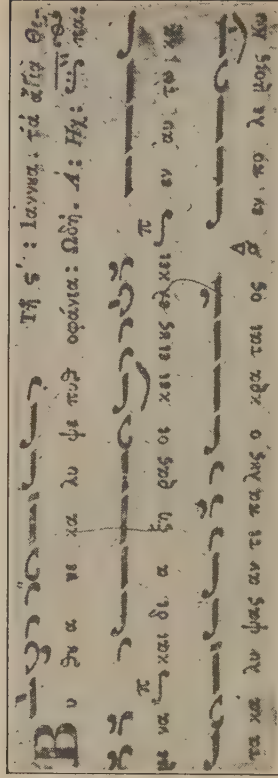 Τῇ ς΄: Ιαννȣα: τὰ ἅγια Θε-
οφάνια: Ωδὴ. Α: Ηχ: πα:
Β υ θȣ α νε κα λυ ψε πυθ
με να και δι α ξη ρας οι κει ȣς ελ κει εν αυ τω κα
τα κα λυ ψας αν τι πα λȣς ο κρα ται ος εν πο λε μοις κυ